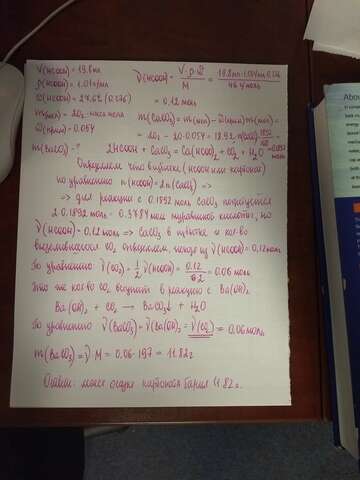 V(HCOOH) = 19.8 мл
ρ(HCOOH) = 1.01 г/мл
ω(HCOOH) = 27.6% (0.276)
m(мел) = 20 г. - масса мела
ω(прим) = 0.054
m(BaCO₃) - ?
ν(HCOOH) = V·ρ·ω / M = 19.8 мл · 1.01 г/мл · 0.276 / 46 г/моль
= 0.12 моль
m(CaCO₃) = m(мел) - m(прим) =
= 20 - 20·0.054 = 18.92
2HCOOH + CaCO₃ = Ca(HCOO)₂ + CO₂ + H₂O
Определяем что в избытке (HCOOH или карбонат)
по уравнению n(HCOOH) = 2n(CaCO₃) =>
=> для реакции с 0.1892 моль CaCO₃ потребуется
2·0.1892 моль = 0.3784 моль муравьиной кислоты, но
ν(HCOOH) = 0.12 моль => CaCO₃ в избытке и кол-во
выделившегося CO₂ определяем, исходя из ν(HCOOH) = 0.12 моль
По уравнению ν(CO₂) = 1/2 ν(HCOOH) = 0.12/2 = 0.06 моль
Это же кол-во CO₂ вступит в реакцию с Ba(OH)₂
Ba(OH)₂ + CO₂ → BaCO₃↓ + H₂O
По уравнению ν(BaCO₃) = ν(Ba(OH)₂) = ν(CO₂) = 0.06 моль
m(BaCO₃) = ν · M = 0.06 · 197 = 11.82 г
Ответ: масса осадка карбоната бария 11.82 г.